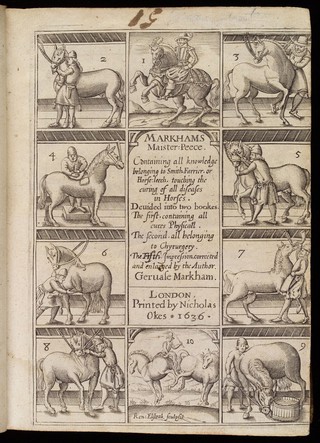 51
2
1
3
MARKHAMS
Maister-Peece.
Containing all knowledge
belonging to Smith, Farrier, or
Horse-Leech, touching the
curing of all diseases
in Horses.
Deuided into two bookes.
The first containing all
cures Physicall.
The second all belonging
to Chyrurgery.
The Fifth Impression corrected
and enlarged by the Author.
Geruase Markham.
LONDON.
Printed by Nicholas
Okes • 1636 •
4
5
6
7
8
10
9
Ren: Elstrak sculpsit